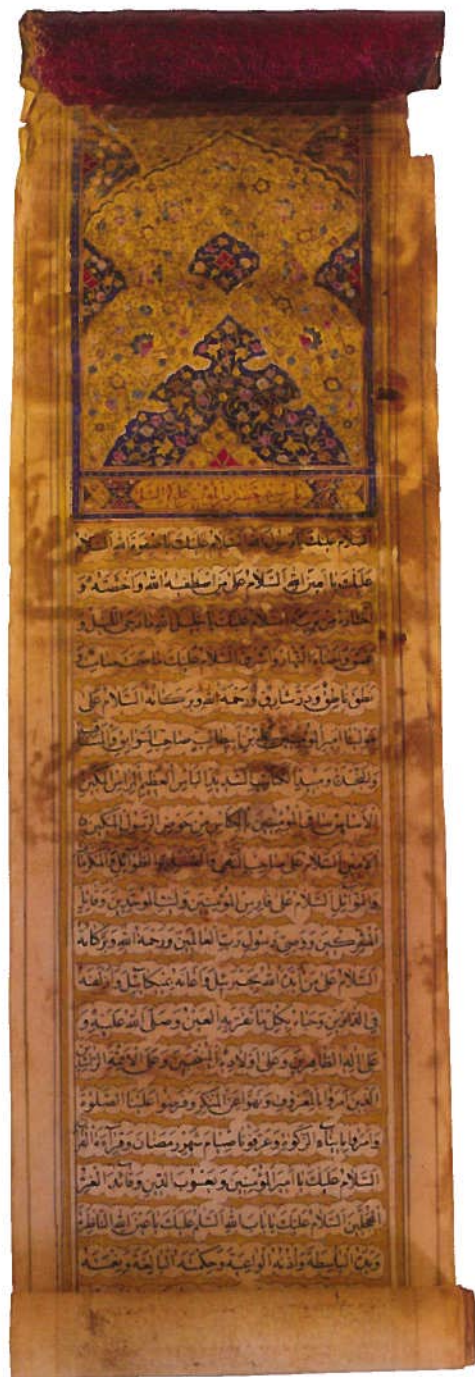 السلام عليك يا رسول الله السلام عليك يا صفوة الله السلام
عليك يا امين الله السلام على من اصطفاه الله واختصه و
اختاره من بريته السلام عليك يا خليل الله ما دجى الليل و
غسق واضاء النهار واشرق السلام عليك ما صمت صامت و
نطق ناطق وذر شارق ورحمة الله وبركاته السلام على
مولينا امير المؤمنين على بن ابى طالب صاحب السوابق والمناقب
والنجدة ومبيد الكتائب الشديد الباس العظيم المراس المكين
الاساس ساقى المؤمنين بالكاس من حوض الرسول المكين
الامين السلام على صاحب النهى والفضل والطوائل والمكرمات
والنوائل السلام على فارس المؤمنين وليث الموحدين وقاتل
المشركين ووصى رسول رب العالمين ورحمة الله وبركاته
السلام على من ايده الله بجبرئيل واعانه بميكائيل وازلفه
فى الدارين وحباه بكل ما تقر به العين وصلى الله عليه و
على اله الطاهرين وعلى اولاده المنتجبين وعلى الائمة الراشدين
الذين امروا بالمعروف ونهوا عن المنكر وفرضوا علينا الصلوة
وامروا بايتاء الزكوة وعرفونا صيام شهر رمضان وقراءة القران
السلام عليك يا امير المؤمنين ويعسوب الدين وقائد الغر
المحجلين السلام عليك يا باب الله السلم عليك يا عين الله الناظرة
ويده الباسطة واذنه الواعية وحكمته البالغة ونعمته